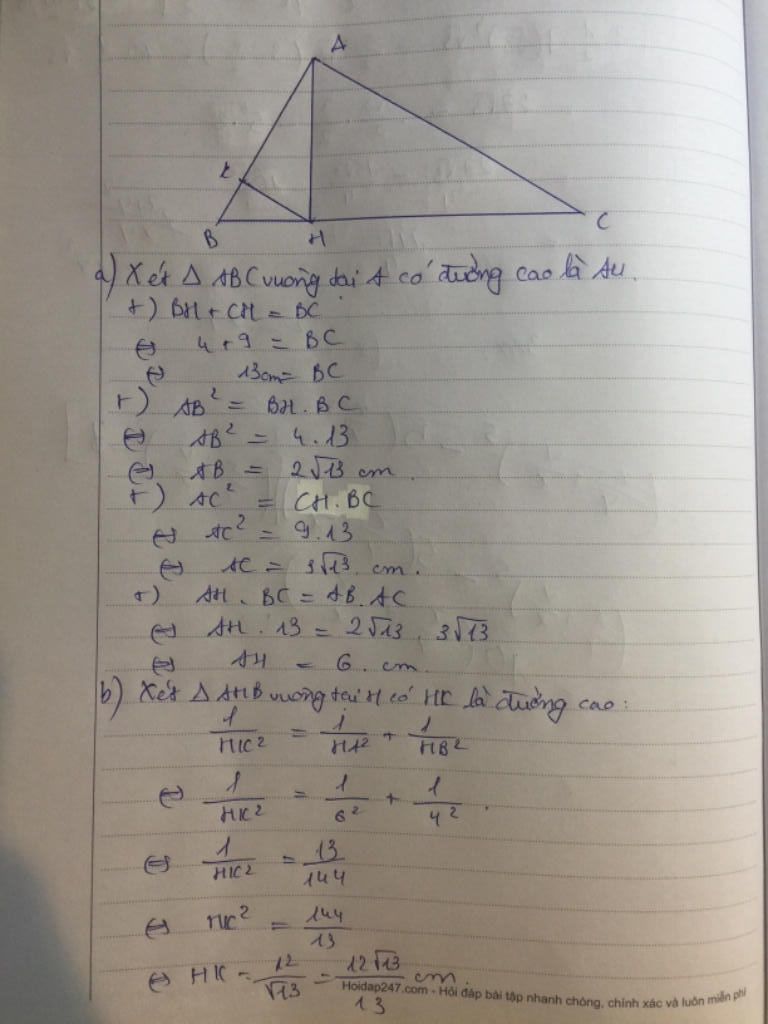 A
K
B
H
C
a) Xét Δ ABC vuông tại A có đường cao là AH.
+) BH + CH = BC
⇔ 4 + 9 = BC
⇔ 13cm = BC
+) AB² = BH . BC
⇔ AB² = 4 . 13
⇔ AB = 2√13 cm.
+) AC² = CH . BC
⇔ AC² = 9 . 13
⇔ AC = 3√13 . cm.
+) AH . BC = AB . AC
⇔ AH . 13 = 2√13 . 3√13
⇔ AH = 6 . cm
b) Xét Δ AHB vuông tại H có HK là đường cao :
1/HK² = 1/HA² + 1/HB²
⇔ 1/HK² = 1/6² + 1/4² .
⇔ 1/HK² = 13/144
⇔ HK² = 144/13
⇔ HK = 12/√13 = 12√13/13 cm.
Hoidap247.com - Hỏi đáp bài tập nhanh chóng, chính xác và luôn miễn phí